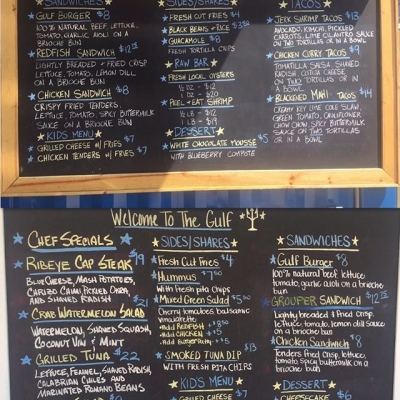 SANDWICHES
GULF BURGER $8
100% NATURAL BEEF, LETTUCE,
TOMATO, GARLIC AIOLI ON A
BRIOCHE BUN
REDFISH SANDWICH $12
LIGHTLY BREADED + FRIED CRISP
LETTUCE, TOMATO, LEMON DILL
ON A BRIOCHE BUN
CHICKEN SANDWICH $8
CRISPY FRIED TENDERS,
LETTUCE, TOMATO, SPICY BUTTERMILK
SAUCE ON A BRIOCHE BUN
KIDS MENU
GRILLED CHEESE W/ FRIES $7
CHICKEN TENDERS W/ FRIES $7
SIDES/SHARES
FRESH CUT FRIES $4
BLACK BEANS + RICE
GUACAMOLE $8
FRESH TORTILLA CHIPS
RAW BAR
FRESH LOCAL OYSTERS
1/2 DZ - $12
1 DZ - $20
PEEL + EAT SHRIMP
1/2 LB - $12
1 LB - $19
DESSERT
WHITE CHOCOLATE MOUSSE $5
WITH BLUEBERRY COMPOTE
TACOS
JERK SHRIMP TACOS $13
AVOCADO, KIMCHI, PICKLED
CARROTS, LIME CILANTRO SAUCE
ON TWO TORTILLAS OR IN A BOWL
CHICKEN CURRY TACOS $9
TOMATILLO SALSA, SHAVED
RADISH, COTIJA CHEESE
ON TWO TORTILLAS OR
IN A BOWL
BLACKENED MAHI TACOS $14
CREAMY KEY LIME SLAW,
GREEN TOMATO, CAULIFLOWER
CHOW CHOW, SPICY BUTTERMILK
SAUCE ON TWO TORTILLAS
OR IN A BOWL
WELCOME TO THE GULF
CHEF SPECIALS
RIBEYE CAP STEAK $19
BLUE CHEESE, MASH POTATOES,
AND SHAVED RADISH
CRAB WATERMELON SALAD $21
WATERMELON, SHAVED SQUASH,
COCONUT VIN & MINT
GRILLED TUNA $22
LETTUCE, FENNEL, SHAVED RADISH,
CALABRIAN CHILES AND
MARINATED ROMANO BEANS
SIDES/SHARES
Fresh Cut Fries $4
Hummus
WITH FRESH PITA CHIPS
Mixed Green Salad
Cherry tomatoes, balsamic
vinaigrette
Add REDFISH
Add CHICKEN
Add Burger Patty
SMOKED TUNA DIP $13
WITH FRESH PITA CHIPS
KIDS MENU
GRILLED CHEESE $7
SANDWICHES
Gulf Burger $8
100% natural beef, lettuce,
tomato, garlic aioli on a
brioche bun
GROUPER SANDWICH $12
Lightly breaded & Fried Crisp
Lettuce, tomato, lemon dill sauce
on a brioche bun
Chicken Sandwich $8
Tenders Fried crisp, lettuce,
tomato spicy buttermilk
on a brioche bun
DESSERT
CHEESECAKE $6